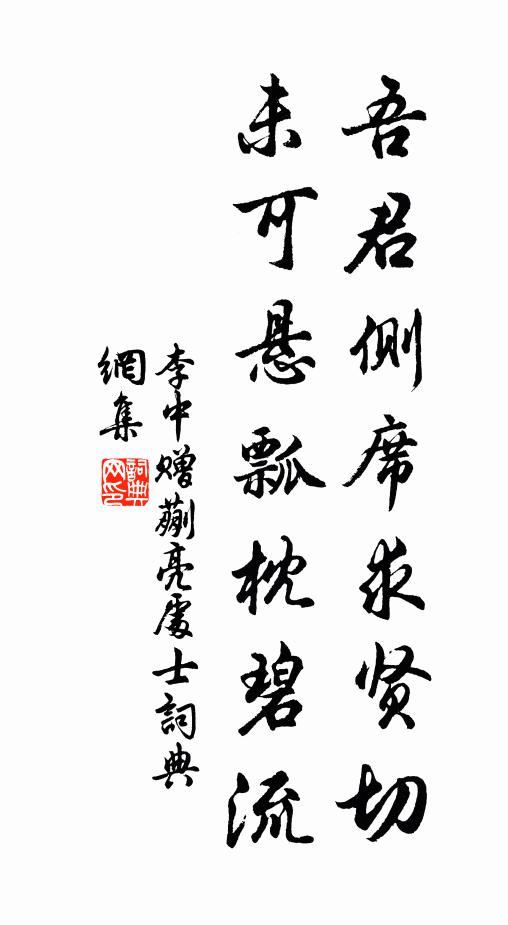 吾君側席求贤切
未可悬瓢枕碧流
李中赠蒯亮處士詞典
網集
詞典
网印